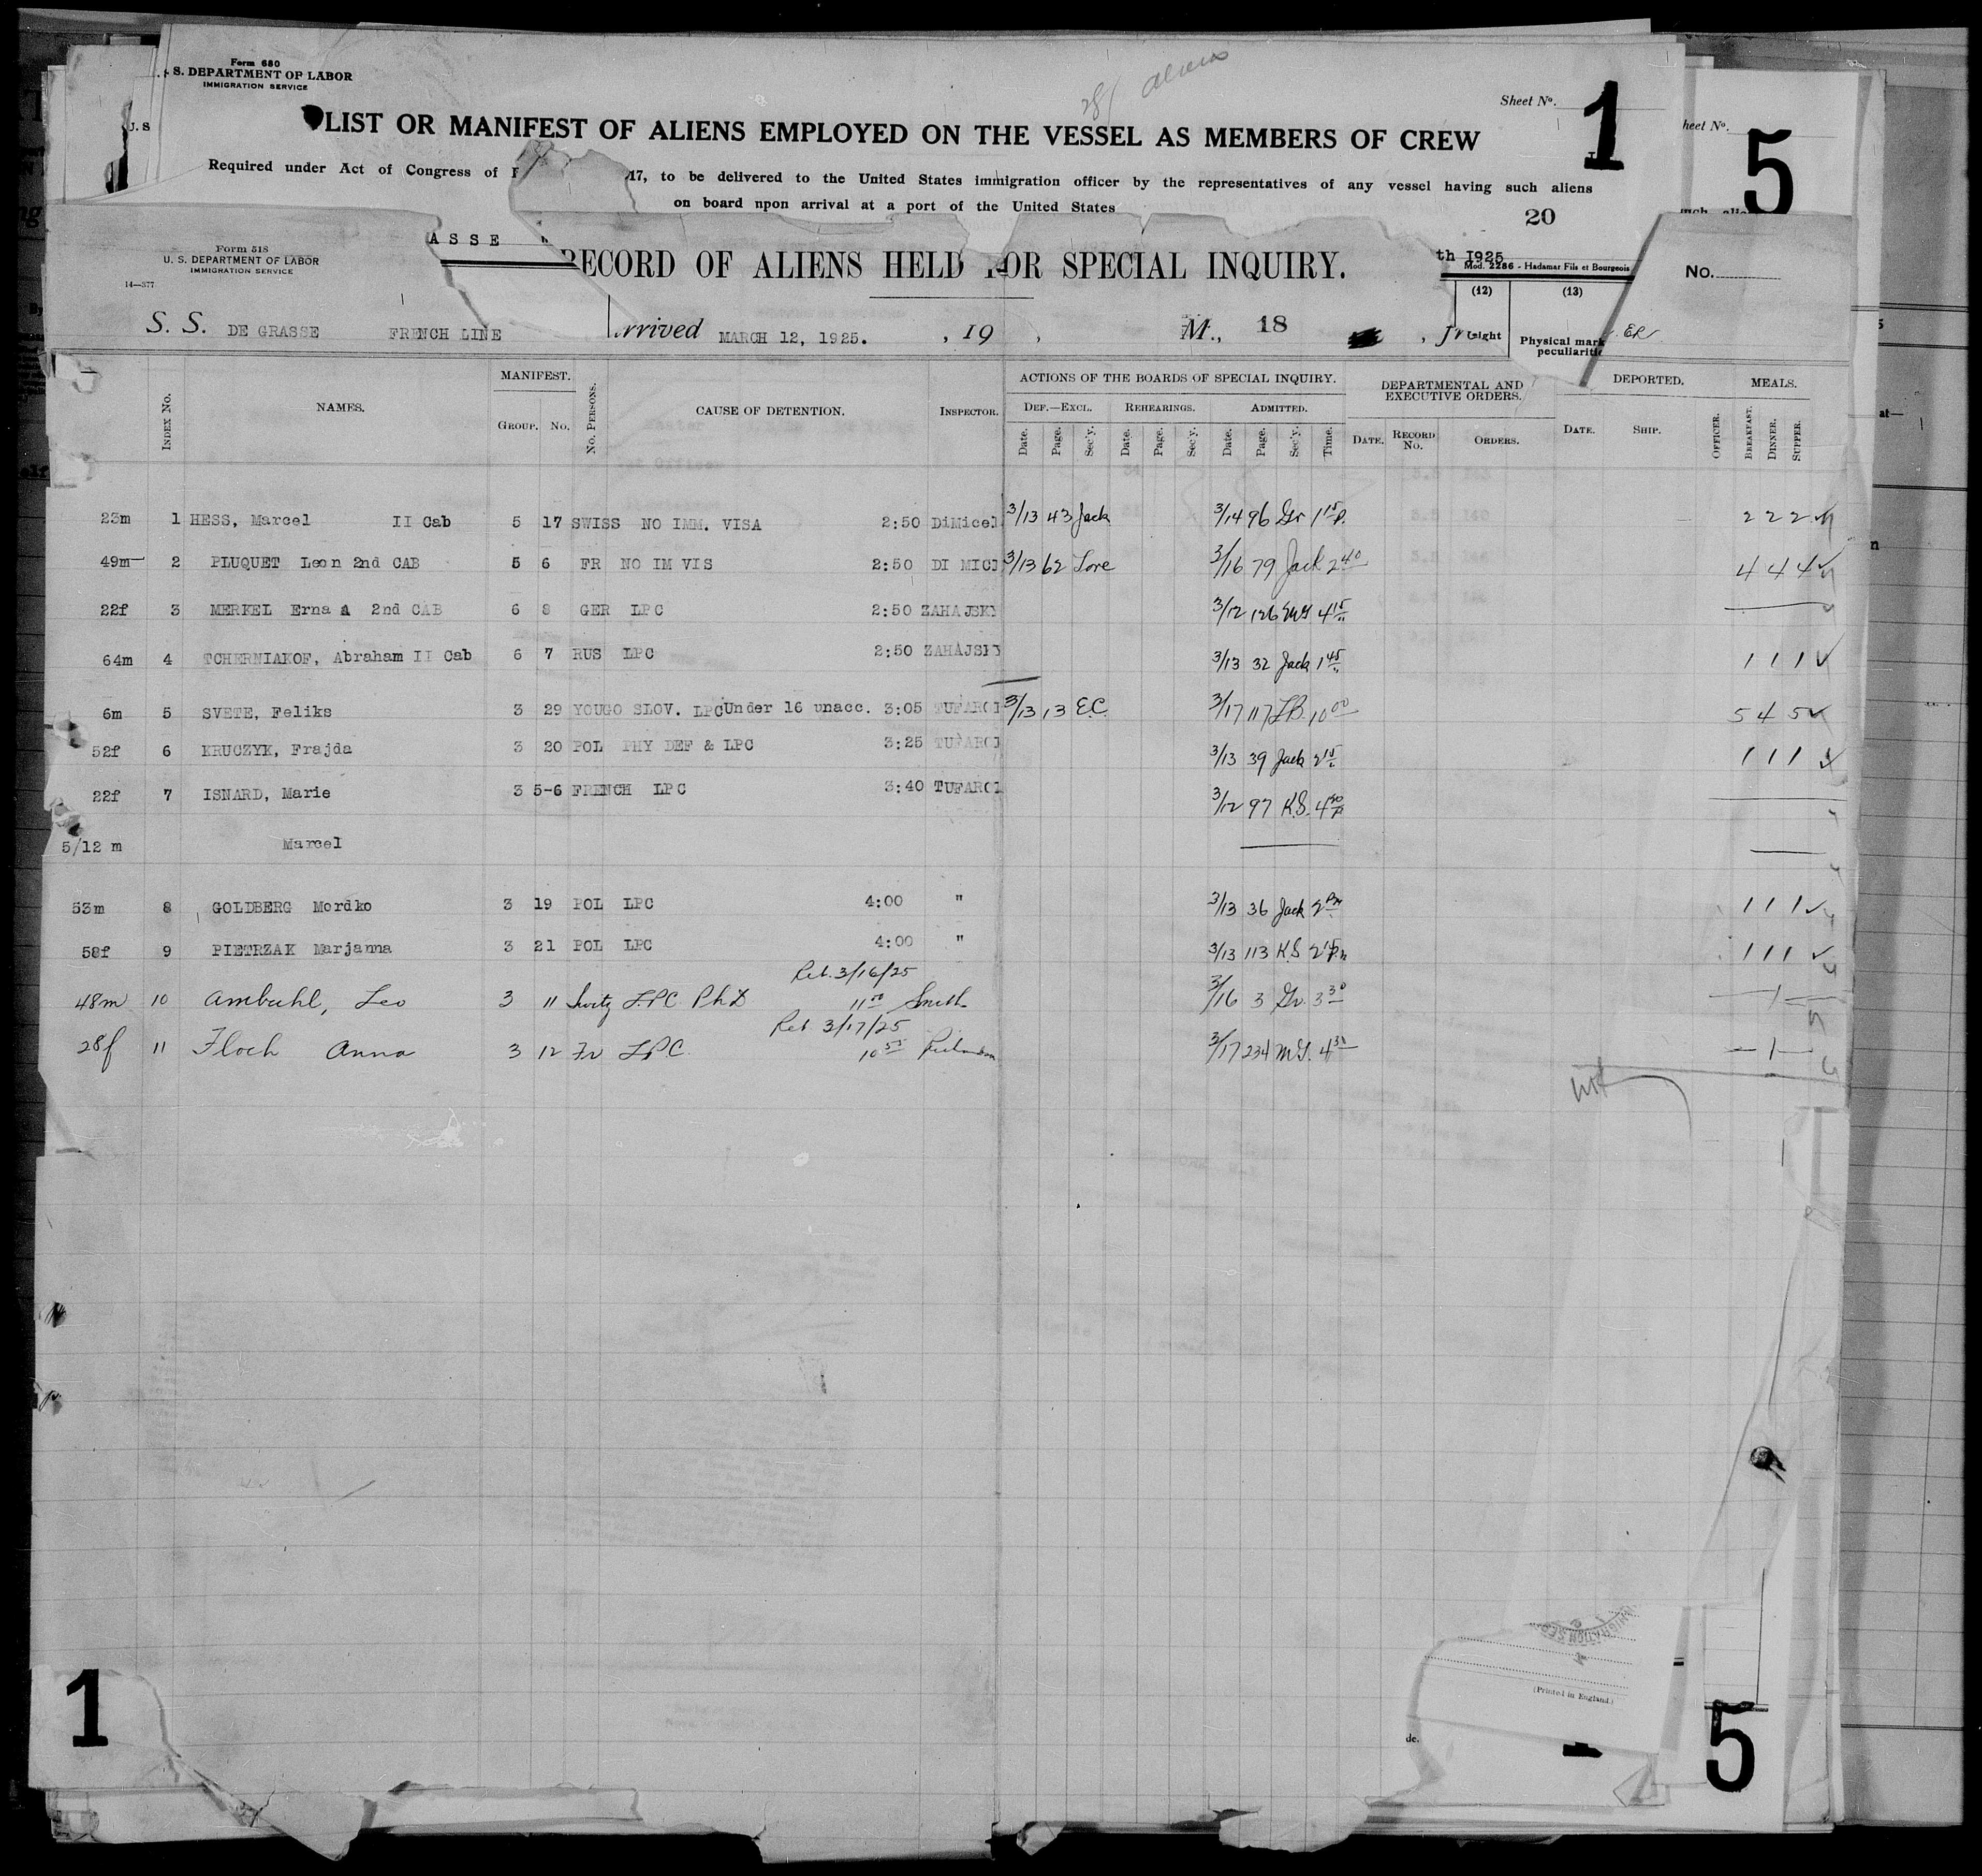 Form 680
S. DEPARTMENT OF LABOR
IMMIGRATION SERVICE
28 aliens
Sheet No.
1
LIST OR MANIFEST OF ALIENS EMPLOYED ON THE VESSEL AS MEMBERS OF CREW
Required under Act of Congress of
17, to be delivered to the United States immigration officer by the representatives of any vessel having such aliens
on board upon arrival at a port of the United States
20
J. S
heet No.
5
ASSE
th 1925
Mod. 2286 - Hadamar Fils et Bourgeois
(12) (13)
Physical mark
peculiaritie
Form 518
U. S. DEPARTMENT OF LABOR
IMMIGRATION SERVICE
14—377
RECORD OF ALIENS HELD FOR SPECIAL INQUIRY.
No.
S. S. DE GRASSE FRENCH LINE arrived MARCH 12, 1925. , 19 , M., 18
MANIFEST. ACTIONS OF THE BOARDS OF SPECIAL INQUIRY. DEPARTMENTAL AND EXECUTIVE ORDERS. DEPORTED. MEALS.
INDEX No. NAMES. GROUP. No. No. PERSONS. CAUSE OF DETENTION. INSPECTOR. DEF.—EXCL. REHEARINGS. ADMITTED.
Date. Page. Sec'y. Date. Page. Sec'y. Date. Page. Sec'y. Time. DATE. RECORD No. ORDERS. DATE. SHIP. OFFICER. BREAKFAST. DINNER. SUPPER.
23m 1 HESS, Marcel II Cab 5 17 SWISS NO IMM. VISA 2:50 DiMicel 3/13 43 Jack 3/14 96 Gr 1 15 P. 2 2 2
49m 2 PLUQUET Leon 2nd CAB 5 6 FR NO IM VIS 2:50 DI MIC 3/13 62 Lore 3/16 79 Jack 2 40 4 4 4
22f 3 MERKEL Erna A 2nd CAB 6 8 GER LPC 2:50 ZAHAJSKY 3/12 126 4 15
64m 4 TCHERNIAKOF, Abraham II Cab 6 7 RUS LPC 2:50 ZAHAJSKY 3/13 32 Jack 1 45 1 1 1
6m 5 SVETE, Feliks 3 29 YOUGO SLOV. LPC Under 16 unacc. 3:05 TUFAROL 3/13 13 E.C. 3/17 117 L.B. 10 00 5 4 5
52f 6 KRUCZYK, Frajda 3 20 POL PHY DEF & LPC 3:25 TUFARO 3/13 39 Jack 2 15 1 1 1
22f 7 ISNARD, Marie 3 5-6 FRENCH LPC 3:40 TUFAROL 3/12 97 K.S. 4
5/12 m Marcel
53m 8 GOLDBERG Mordko 3 19 POL LPC 4:00 " 3/13 36 Jack 2 PM 1 1 1
58f 9 PIETRZAK Marjanna 3 21 POL LPC 4:00 " 3/13 113 K.S 2 15 1 1 1
Ret. 3/16/25
48m 10 Ambuhl, Leo 3 11 Switz L.P.C. Ph D 11 50 Smith 3/16 3 Gr. 3 30 1
Ret 3/17/25
28f 11 Floch Anna 3 12 Fr L.P.C. 10 55 3/17 234 M.G. 4 30 1
(Printed in England)
de.
1
5